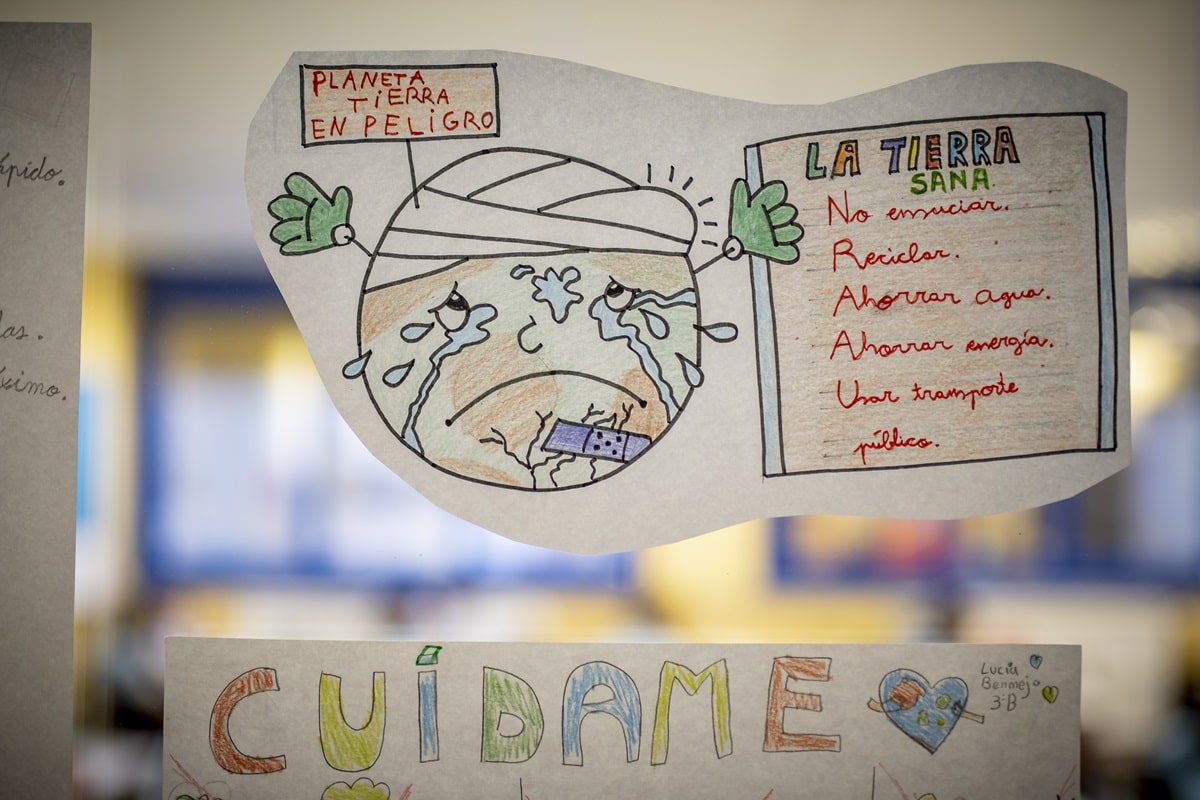 PLANETA
TIERRA
EN PELIGRO
LA TIERRA
SANA
No ensuciar.
Reciclar.
Ahorrar agua.
Ahorrar energía.
Usar transporte
público.
CUÍDAME
Lucía
Bermejo
3ºB